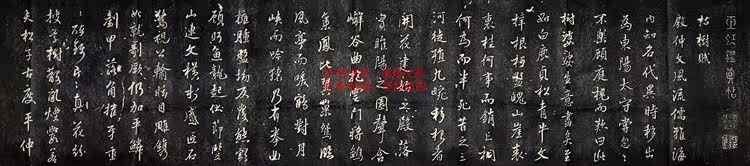 枯樹賦
殷仲文風流儒雅海
內知名代異時移出
為東陽太守常忽
不樂顧庭槐而歎曰此
樹婆娑生意盡矣至
如白鹿貞松青牛文
梓根柢盤魄山崖表
裏桂何事而銷亡桐
何為而半死昔之三
河徙殖九畹移根
開花建始之殿落
實睢陽之園聲含
嶰谷曲抱雲門將雛
集鳳比翼巢鴛臨
風亭而唳鶴對月
峽而吟猿乃有拳曲
擁腫盤坳反覆熊彪
顧盼魚龍起伏節豎
山連文橫水蹙匠石
驚視公輸眩目雕鐫
始就剞劂仍加平鱗
剷甲落角摧牙重
重碎錦片片真花紛
披草樹散亂煙霞若
夫松子古度平仲